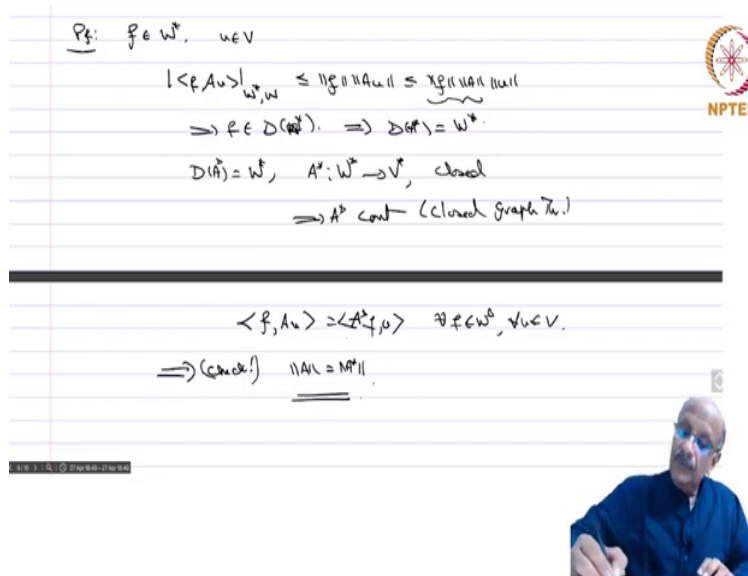 Pf: f ∈ W*, u ∈ V
|<f, Au>|_{W*,W} ≤ ||f|| ||Au|| ≤ ||f|| ||A|| ||u||
⟹ f ∈ D(A*). ⟹ D(A*) = W*.
D(A*) = W*, A*: W* → V*, closed
⟹ A* cont (Closed graph Th.)
NPTEL
<f, Au> = <A*f, u> ∀ f ∈ W*, ∀ u ∈ V.
⟹ (check!) ||A|| = ||A*||.